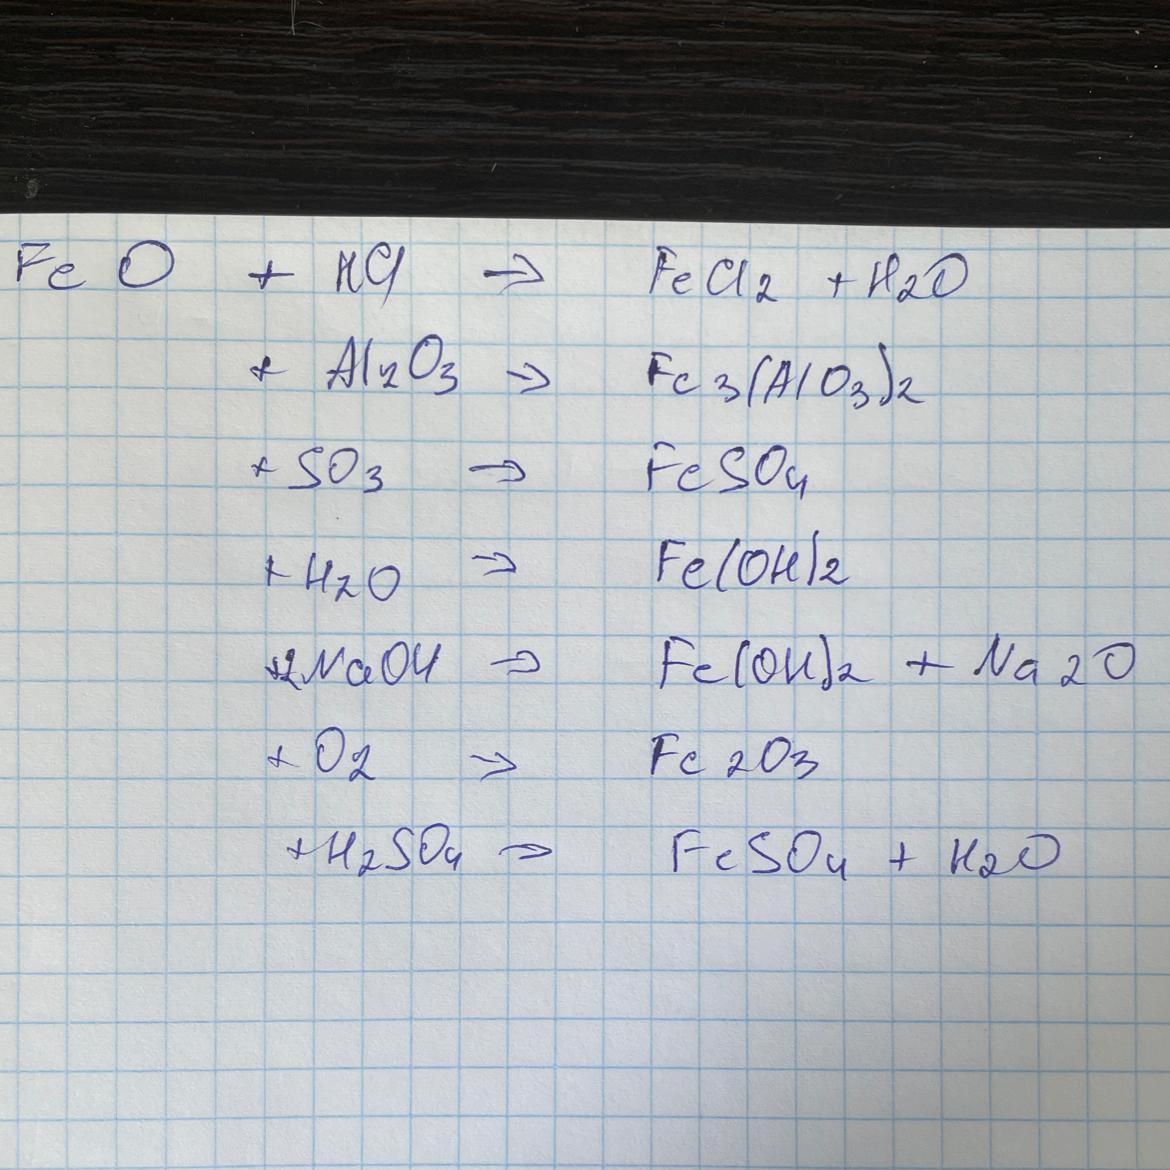 FeO + HCl → FeCl2 + H2O
+ Al2O3 → Fe3(AlO3)2
+ SO3 → FeSO4
+ H2O → Fe(OH)2
+2NaOH → Fe(OH)2 + Na2O
+ O2 → Fe2O3
+ H2SO4 → FeSO4 + H2O